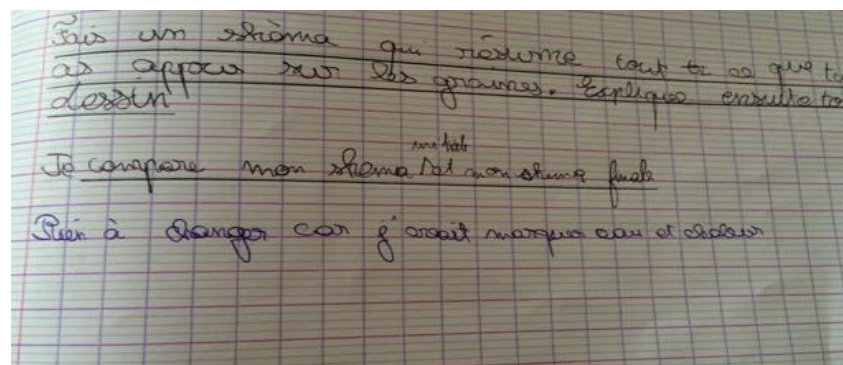 Fais un shéma qui résume tout ce que tu
as appous sur les graines. Expliques ensuite ton
dessin
Je compare mon shema initial et mon shuma finale
Rien à changer car j'avait marquer eau et chaleur